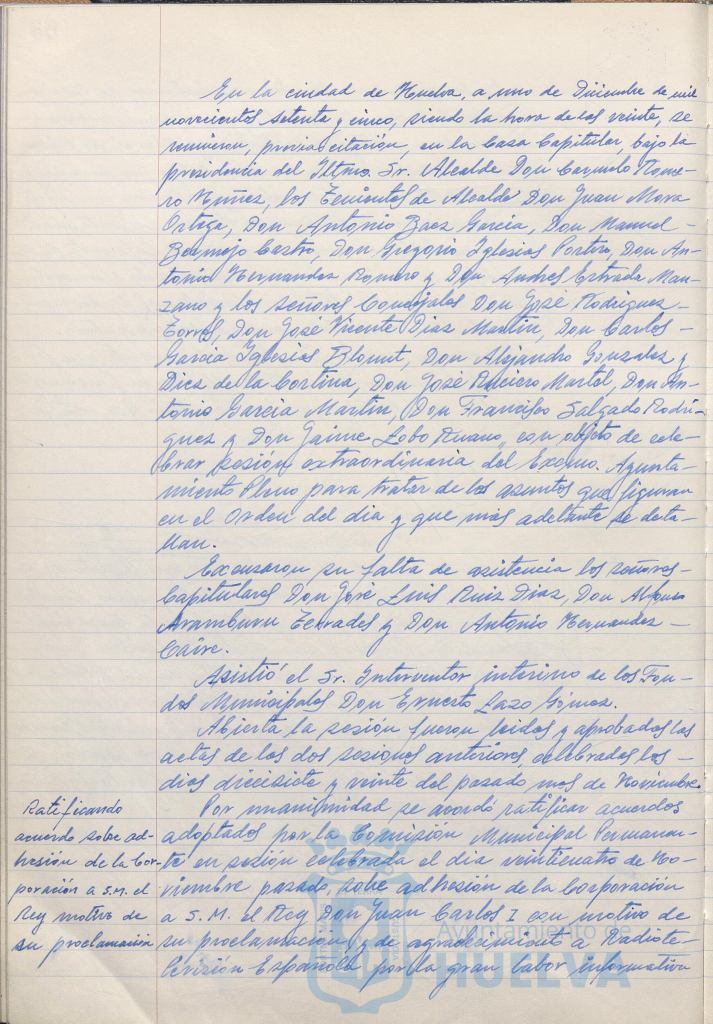 En la ciudad de Huelva, a uno de Diciembre de mil
novecientos setenta y cinco, siendo la hora de las veinte, se
reunieron, previa citación, en la Casa Capitular, bajo la
presidencia del Iltmo. Sr. Alcalde Don Carmelo Rome-
ro Núñez, los Tenientes de Alcalde Don Juan Mora
Ortega, Don Antonio Baez García, Don Manuel -
Bermejo Castro, Don Gregorio Iglesias Portero, Don An-
tonio Hernandez Romero y Don Andres Estrada Man-
zano y los señores Concejales Don José Rodriguez -
Torres, Don José Vicente Diaz Martin, Don Carlos -
Garcia Iglesias Don Alejandro Gonzalez y
Diez de la Cortina, Don José Martel, Don An-
tonio Garcia Martin, Don Francisco Salgado Rodri-
guez y Don Jaime Lobo con objeto de cele-
brar sesión extraordinaria del Excmo. Ayunta-
miento Pleno para tratar de los asuntos que figuran
en el Orden del dia y que más adelante se deta-
llan.
Excusaron su falta de asistencia los señores -
Capitulares Don José Luis Ruiz Diaz, Don Alfonso
Aramburu Terrades y Don Antonio Hernandez -
Caire.
Asistió el Sr. Interventor interino de los Fon-
dos Municipales Don Ernesto Lazo Gómez.
Abierta la sesión fueron leidas y aprobadas las
actas de las dos sesiones anteriores, celebradas los -
dias diecisiete y veinte del pasado mes de Noviembre.
Ratificando
acuerdo sobre ad-
hesión de la Cor-
poración a S.M. el
Rey motivo de
su proclamación
Por unanimidad se acordó ratificar acuerdos
adoptados por la Comisión Municipal Permanen-
te en sesión celebrada el dia veinticuatro de No-
viembre pasado, sobre adhesión de la Corporación
a S. M. el Rey Don Juan Carlos I con motivo de
su proclamación y de agradecimiento a Radiote-
levisión Española por la gran labor informativa
Ayuntamiento de
HUELVA